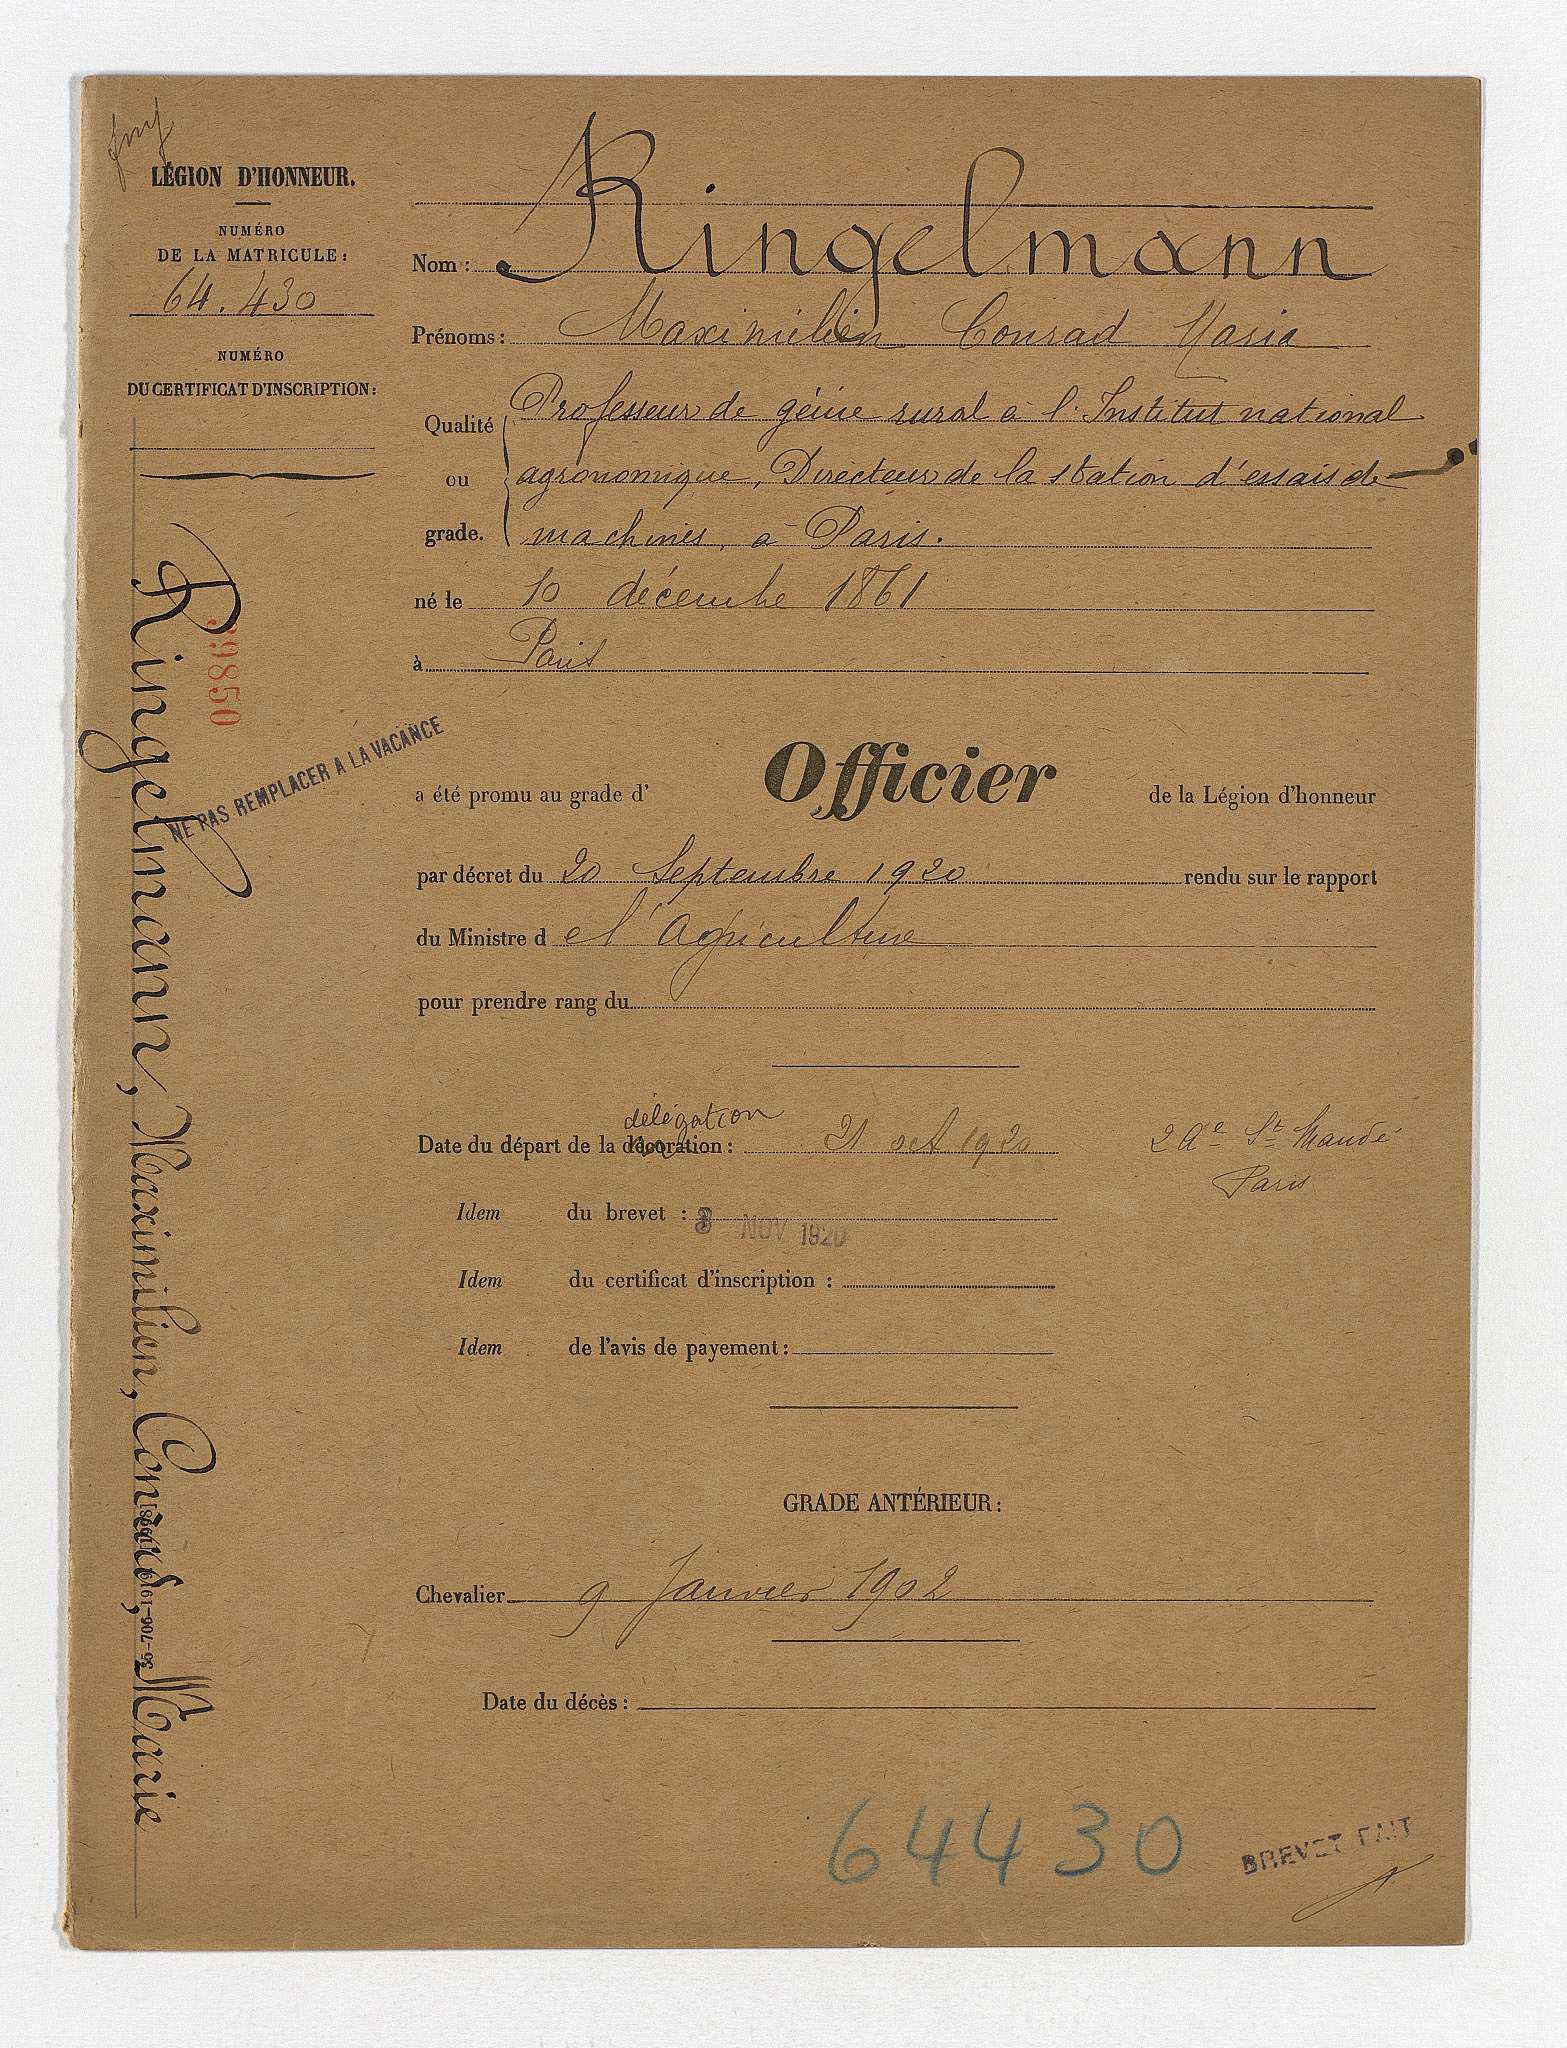 LÉGION D'HONNEUR.
NUMÉRO
DE LA MATRICULE :
64.430
NUMÉRO
DU CERTIFICAT D'INSCRIPTION :
Nom : Ringelmann
Prénoms : Maximilien Conrad Maria
Qualité ou grade. Professeur de génie rural à l'Institut national
agronomique, Directeur de la station d'essais de
machines, à Paris.
né le 10 décembre 1861
à Paris
a été promu au grade d' Officier de la Légion d'honneur
par décret du 20 Septembre 1920 rendu sur le rapport
du Ministre d el'agriculture
pour prendre rang du
délégation
Date du départ de la décoration : 21 oct 1920 2 Ae St Mandé
Paris
Idem du brevet : 3 NOV 1920
Idem du certificat d'inscription :
Idem de l'avis de payement :
GRADE ANTÉRIEUR :
Chevalier 9 Janvier 1902
Date du décès :
64430
BREVET FAIT
Ringelmann, Maximilien, Conrad, Marie
9850
NE PAS REMPLACER A LA VACANCE
36-706-1919.